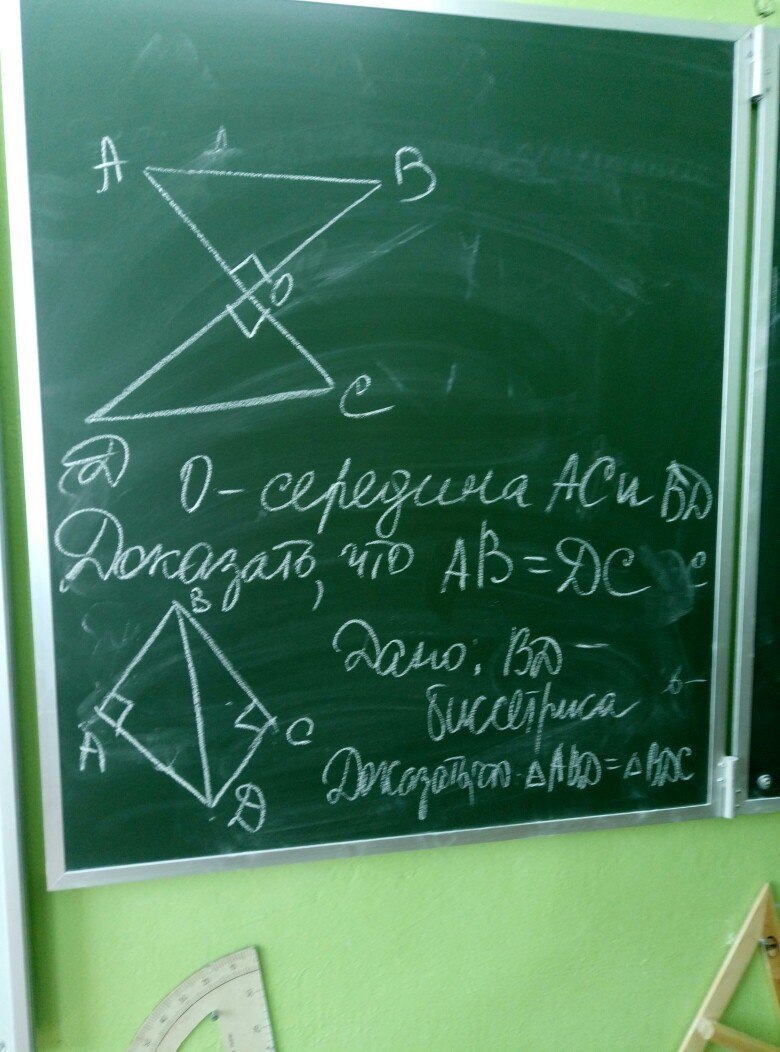 A
B
O
C
D
O - середина AC и BD
Доказать, что AB = DC
B
Дано: BD -
биссетриса
A
C
D
Доказать, что △ABD = △BDC